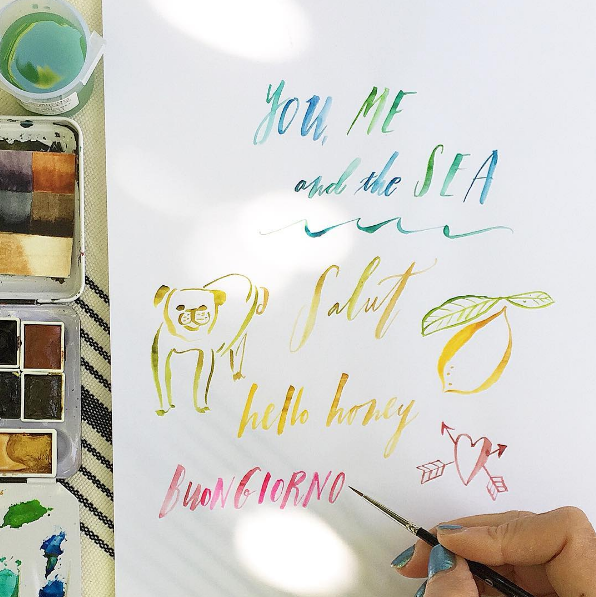 YOU, ME
and the SEA
Salut
hello honey
BUONGIORNO